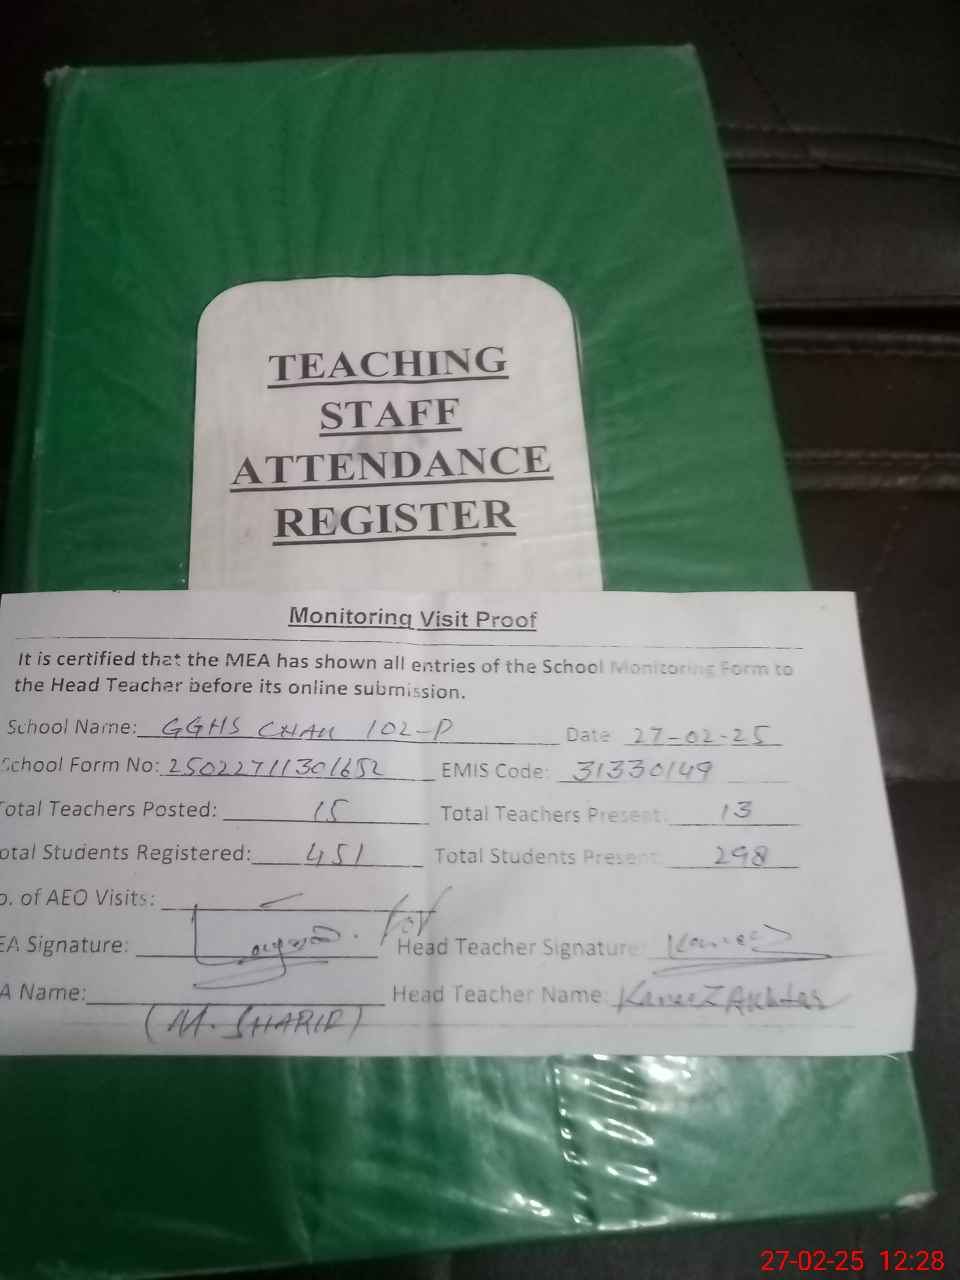 TEACHING
STAFF
ATTENDANCE
REGISTER
Monitoring Visit Proof
It is certified that the MEA has shown all entries of the School Monitoring Form to
the Head Teacher before its online submission.
School Name: GGHS CHAK 102-P Date 27-02-25
School Form No: 25022711301652 EMIS Code: 31330149
Total Teachers Posted: 15 Total Teachers Present: 13
otal Students Registered: 451 Total Students Present: 298
o. of AEO Visits:
EA Signature: Head Teacher Signature: Kaneez
A Name: Head Teacher Name: Kaneez Akhtar
(M. SHARIF)
27-02-25 12:28